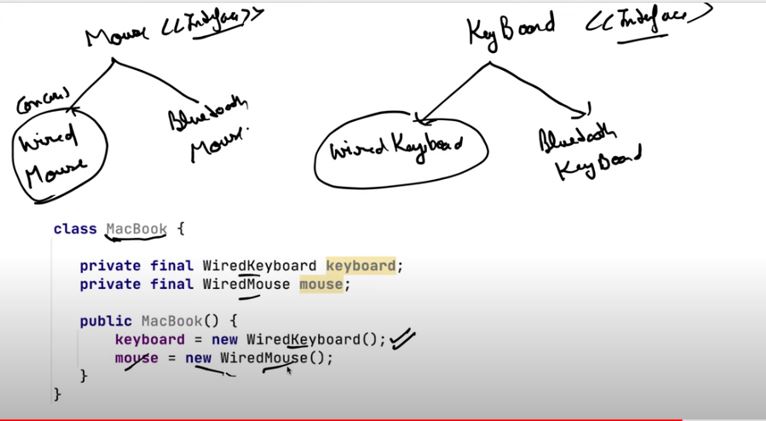 Mouse <<Interface>>
KeyBoard <<Interface>>
Wired
Mouse
Bluetooth
Mouse.
Wired Keyboard
Bluetooth
KeyBoard
class MacBook {
private final WiredKeyboard keyboard;
private final WiredMouse mouse;
public MacBook() {
keyboard = new WiredKeyboard();
mouse = new WiredMouse();
}
}